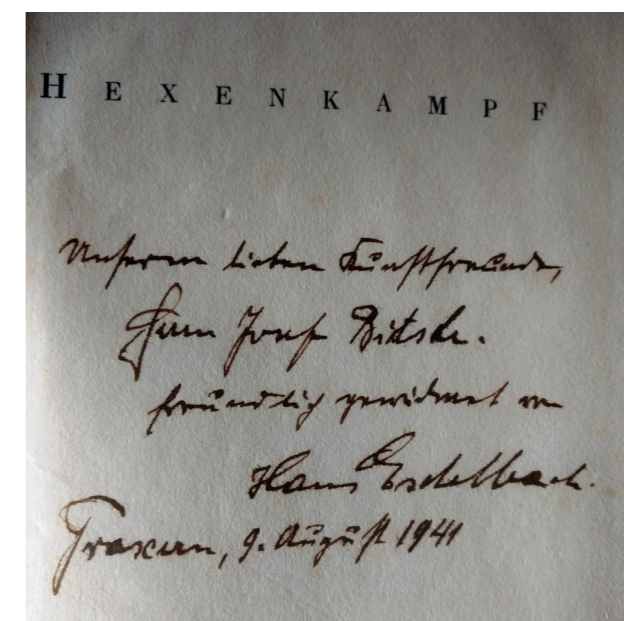 HEXENKAMPF
Unserem lieben Kunstfreunde,
Herrn Josef
freundlich gewidmet von
Hans Eschelbach.
9. August 1941